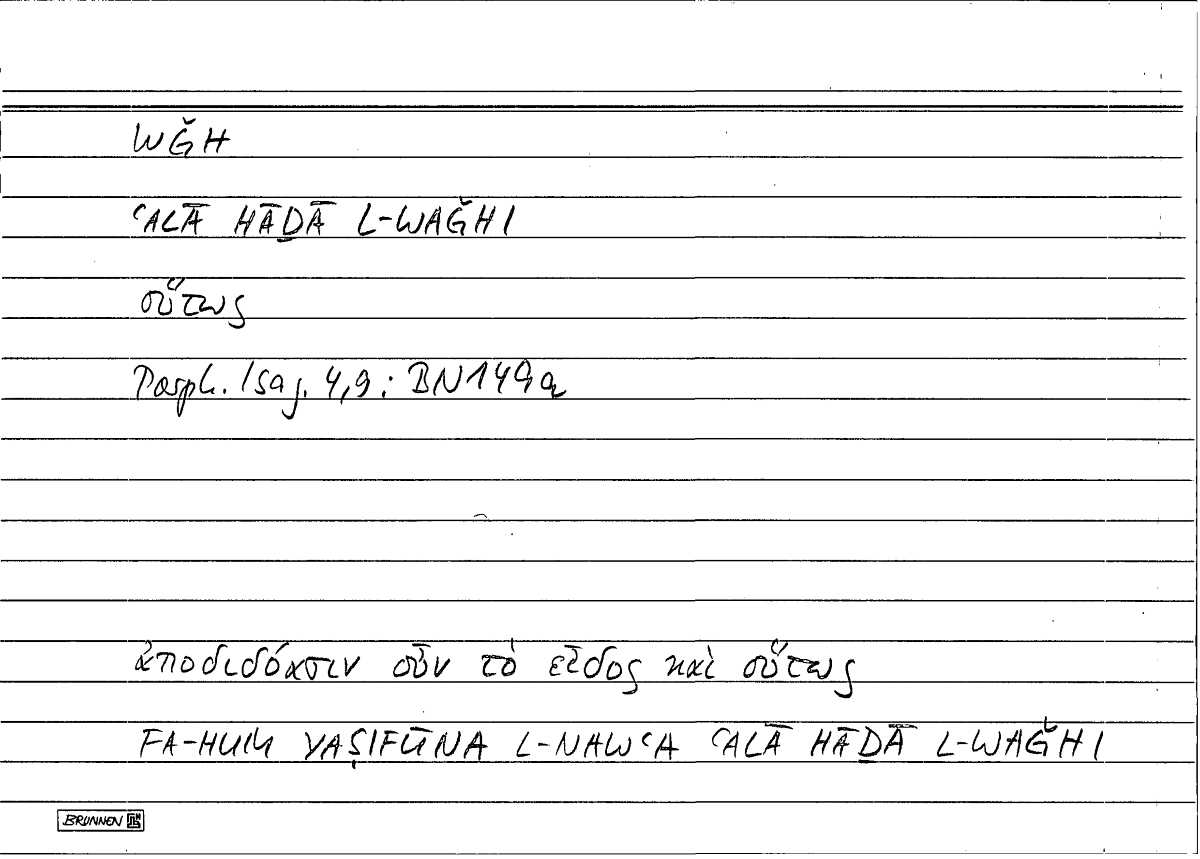 WǦH
ʿALĀ HĀḎĀ L-WAǦHI
οὕτως
Porph. Isag. 4,9 : BN149a
ἀποδιδόασιν οὖν τὸ εἶδος καὶ οὕτως
FA-HUM YAṢIFŪNA L-NAWʿA ʿALĀ HĀḎĀ L-WAǦHI
BRUNNEN